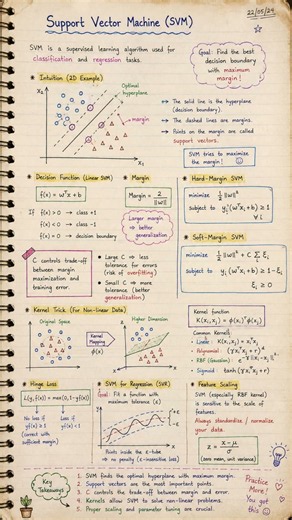 22/05/24
Support Vector Machine (SVM)
SVM is a supervised learning algorithm used for
classification and regression tasks.
Goal: Find the best
decision boundary
with maximum
margin!
Intuition (2D Example)
X₂
Optimal
hyperplane
margin
X₁
→ The solid line is the hyperplane
(decision boundary).
→ The dashed lines are margins.
→ Points on the margin are called
support vectors.
SVM tries to maximize
the margin!
Decision Function (Linear SVM)
f(x) = wᵀx + b
If f(x) > 0 → class +1
f(x) < 0 → class -1
f(x) = 0 → decision boundary
Margin
Margin = 2 / ||w||
Larger margin
→ better
generalization
Hard-Margin SVM
minimize 1/2 ||w||²
subject to yᵢ(wᵀxᵢ + b) ≥ 1
∀ i
Soft-Margin SVM
minimize 1/2 ||w||² + C Σ ξᵢ
subject to yᵢ(wᵀxᵢ + b) ≥ 1 - ξᵢ
ξᵢ ≥ 0
C controls trade-off
between margin
maximization and
training error.
→ Large C → less
tolerance for errors
(risk of overfitting)
→ Small C → more
tolerance (better
generalization)
Kernel Trick (For Non-linear Data)
Original Space
Kernel
Mapping
ϕ(x)
Higher Dimension
Kernel function
K(xᵢ, xⱼ) = ϕ(xᵢ)ᵀ ϕ(xⱼ)
Common Kernels:
• Linear :
• Polynomial :
• RBF (Gaussian) :
• Sigmoid :
Hinge Loss
L(y, f(x)) = max(0, 1 - yf(x))
No loss if
yf(x) ≥ 1
(correct with
sufficient margin)
Loss if
yf(x) < 1
SVM for Regression (SVR)
Goal: Fit a function with
maximum tolerance (ε)
+ε
-ε
Points inside the ε-tube
→ no penalty (ε-insensitive loss)
Feature Scaling
SVM (especially RBF kernel)
is sensitive to the scale of
features.
Always standardize / normalize
your data.
z = x - μ / σ
(zero mean, unit variance)
Key
Takeaways
1. SVM finds the optimal hyperplane with maximum margin.
2. Support vectors are the most important points.
3. C controls the trade-off between margin and error.
4. Kernels allow SVM to solve non-linear problems.
5. Proper scaling and parameter tuning are crucial.
Practice
More!
You got
this!